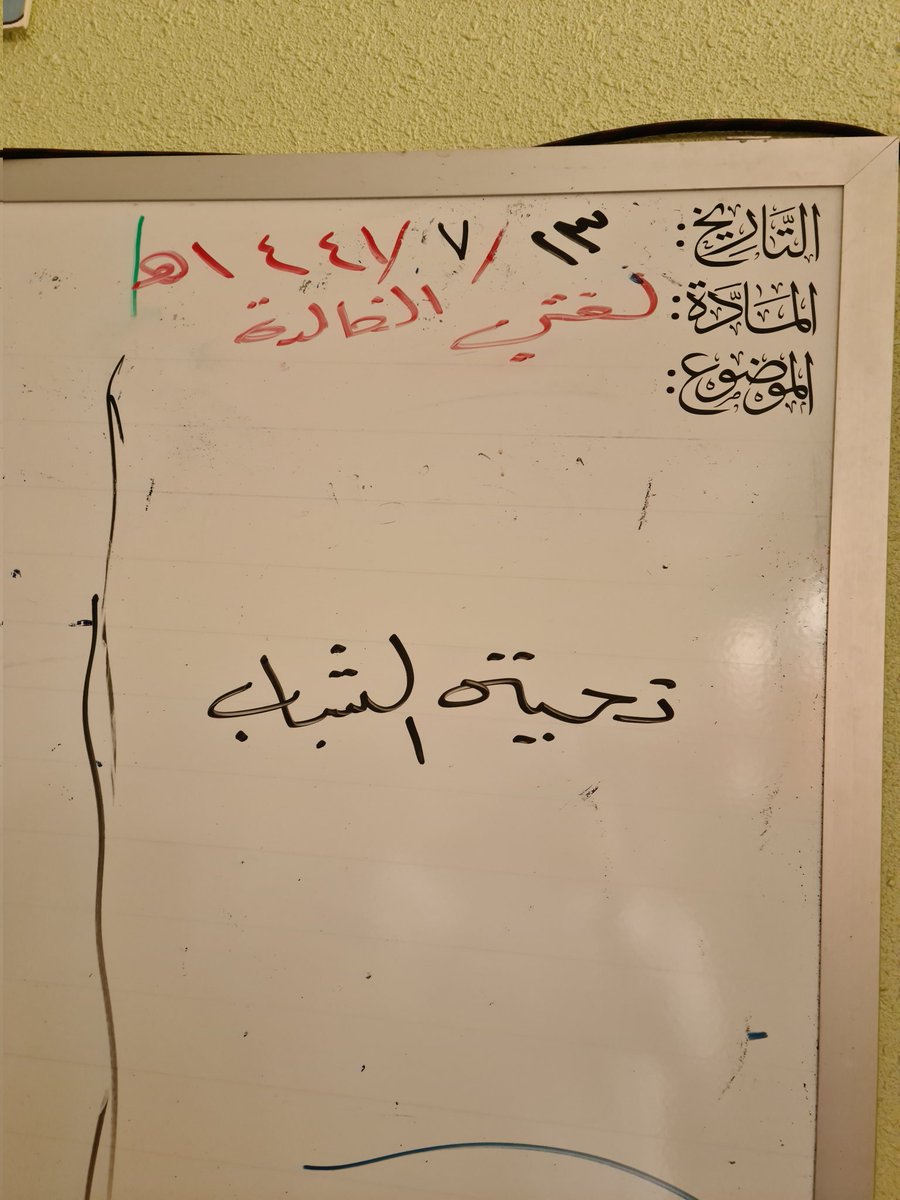 التَّارِيخ: ١٣ / ٧ / ١٤٤٧هـ
المَادَّة: لغتي الخالدة
الموضوع:
تحية الشباب